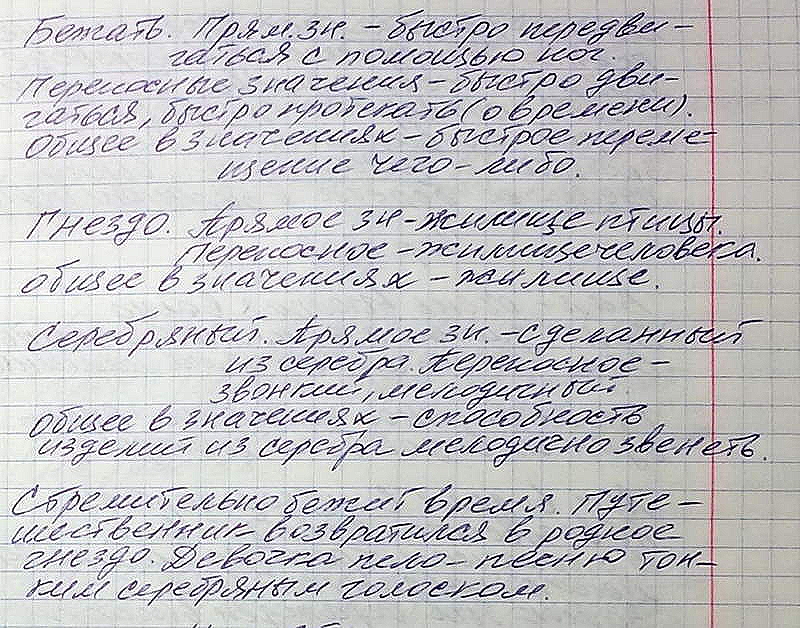 Бежать. Прям. зн. - быстро передви-
гаться с помощью ног.
Переносные значения - быстро дви-
гаться, быстро протекать (о времени).
Общее в значениях - быстрое переме-
щение чего-либо.
Гнездо. Прямое зн - жилище птицы.
Переносное - жилище человека.
общее в значениях - жилище.
Серебряный. Прямое зн. - сделанный
из серебра. Переносное -
звонкий, мелодичный.
общее в значениях - способность
изделий из серебра мелодично звенеть.
Стремительно бежит время. Путе-
шественник возвратился в родное
гнездо. Девочка пела песню тон-
ким серебряным голоском.